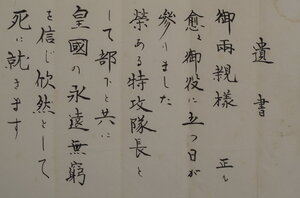 遺書
御両親様 正し
愈々御役に立つ日が
参りました
栄ある特攻隊長と
して部下と共に
皇國の永遠無窮
を信じ欣然として
死に就きます